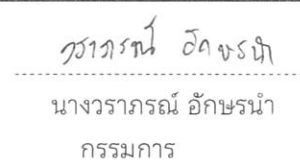 วราภรณ์ อักษรนำ
นางวราภรณ์ อักษรนำ
กรรมการ